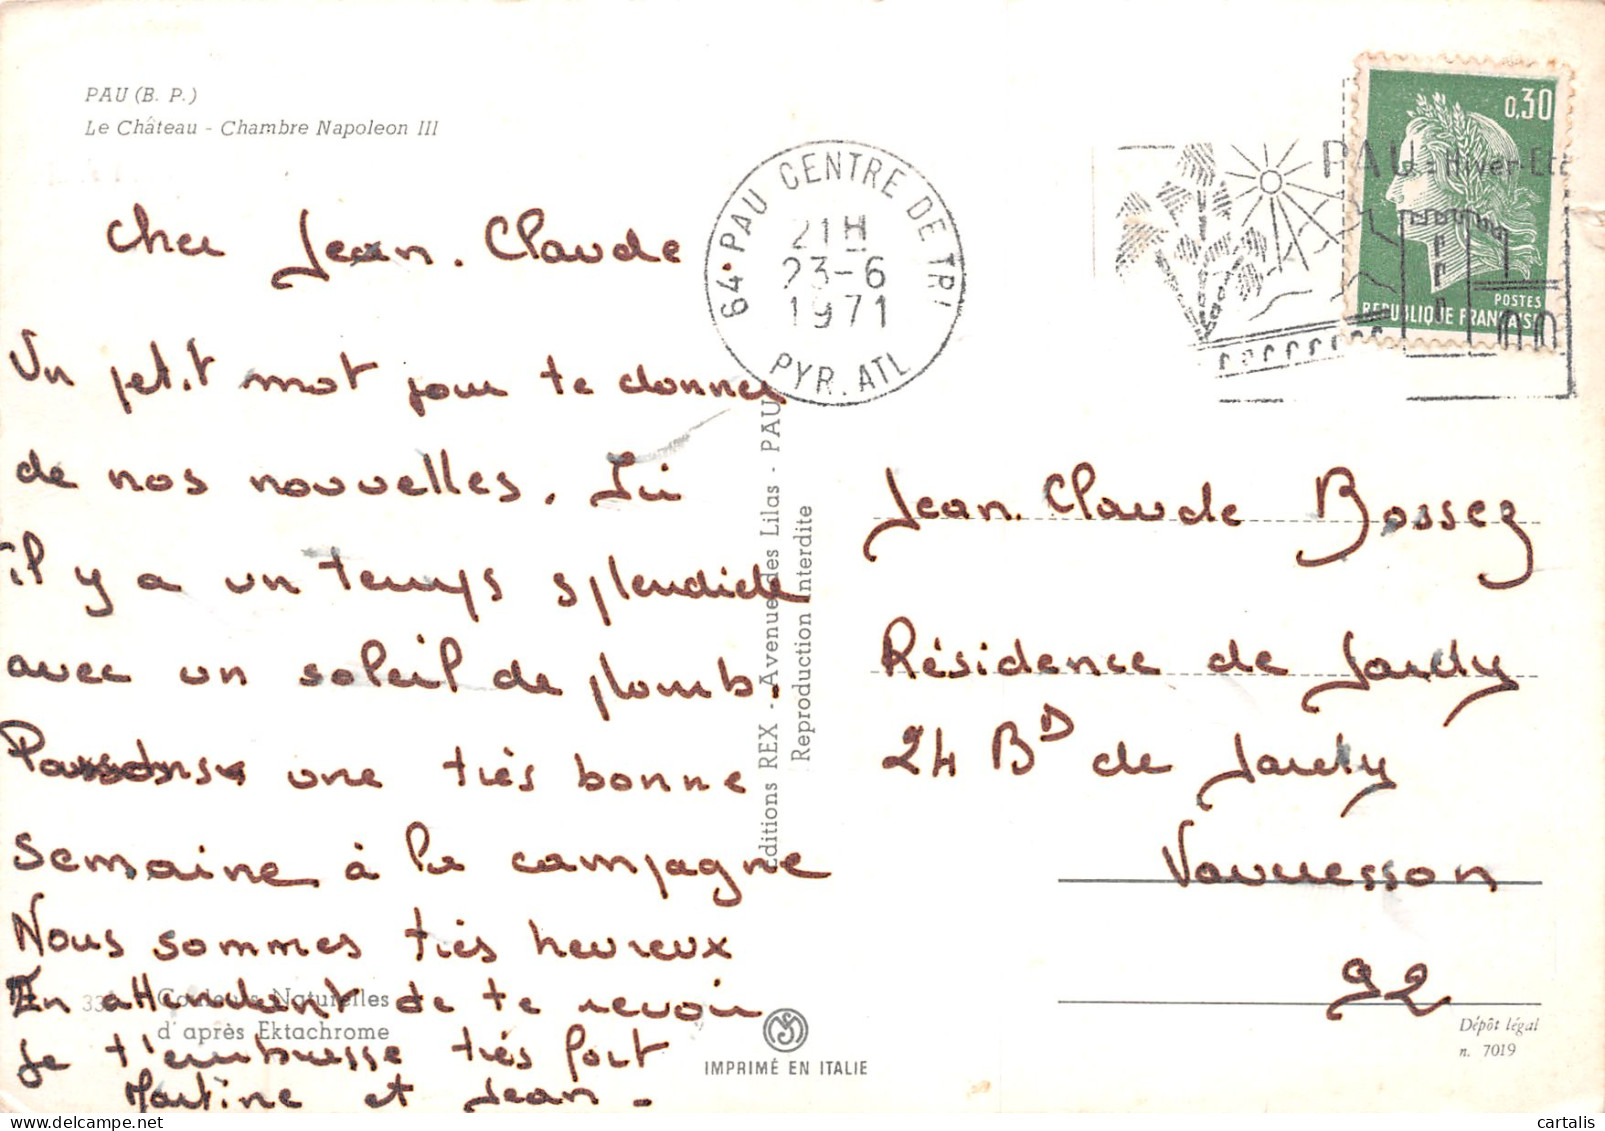 PAU (B. P.)
Le Château - Chambre Napoleon III
Cher Jean. Claude
Un petit mot pour te donner
de nos nouvelles. Ici
il y a un temps splendide
avec un soleil de plomb.
Passons une très bonne
semaine à la campagne
Nous sommes très heureux
En attendant de te revoir
Je t'embrasse très fort
Martine et Jean -
Couleurs Naturelles
d'après Ektachrome
Editions REX - Avenue des Lilas - PAU
Reproduction Interdite
IMPRIMÉ EN ITALIE
64 - PAU CENTRE DE TRI
21H
23-6
1971
PYR. ATL
PAU - Hiver-Eté
0,30
POSTES
REPUBLIQUE FRANÇAISE
Jean. Claude Bossez
Résidence de Jardy
24 Bd de Jardy
Vaucresson
92
Dépôt légal
n. 7019
cartalis